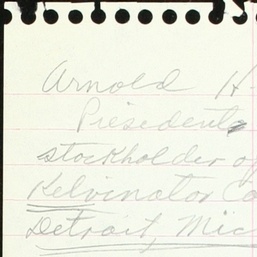 Arnold H
President
stockholder of
Kelvinator Co
Detroit, Mic